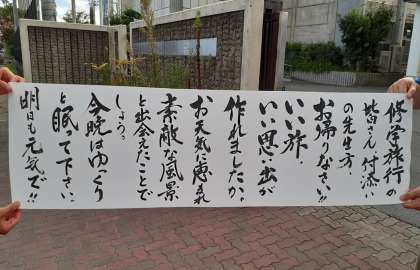 修学旅行の
皆さん、付添い
の先生方、
お帰りなさい!!
いい旅、
いい思い出が
作れましたか。
お天気に恵まれ
素敵な風景
と出会えたことで
しょう。
今晩はゆっくり
と眠って下さい。
明日も元気で!!